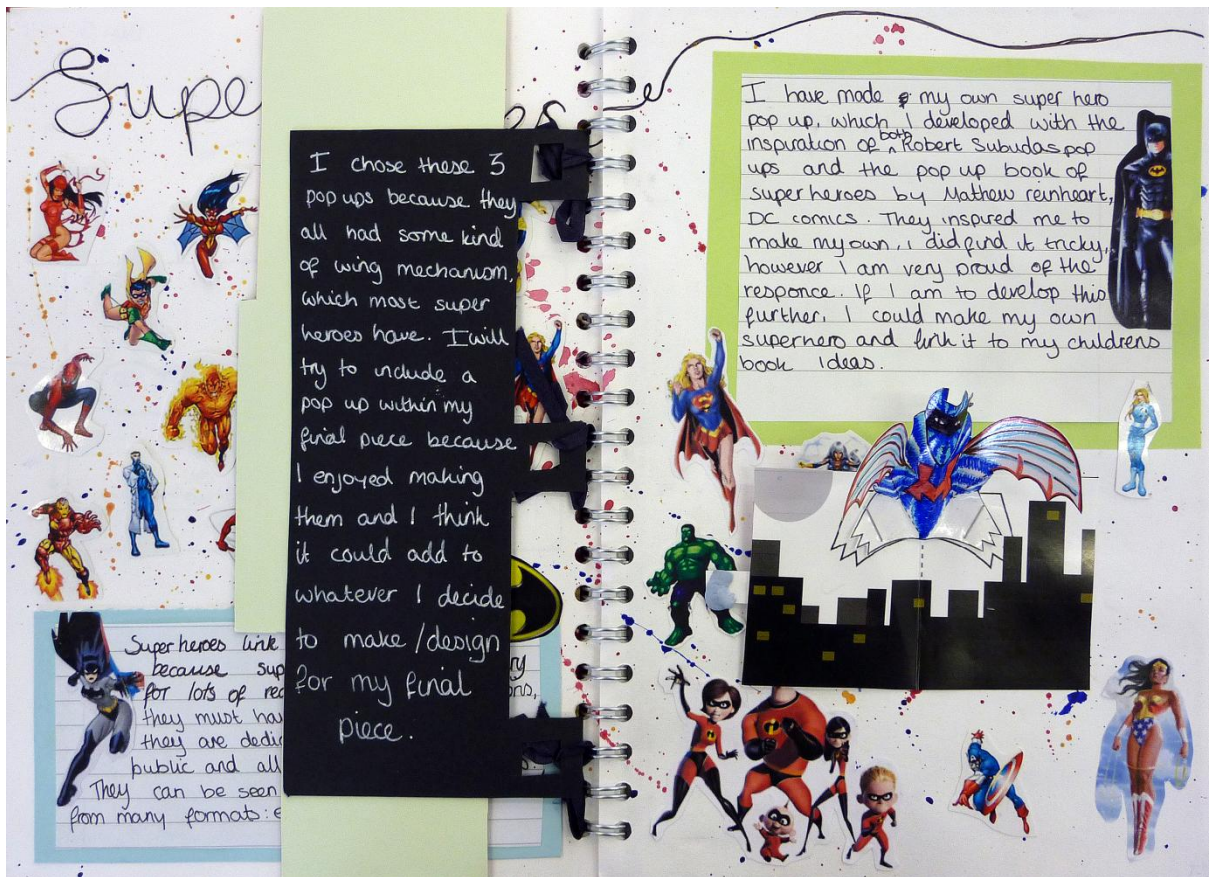 Supe
es
I chose these 3
pop ups because they
all had some kind
of wing mechanism,
which most super
heroes have. I will
try to include a
pop up within my
final piece because
I enjoyed making
them and I think
it could add to
whatever I decide
to make/design
for my final
piece.
Superheroes link
because sup
for lots of rea
ons,
they must hav
they are dedic
public and all
They can be seen
from many formats: e
I have made my own super hero
pop up, which I developed with the
inspiration of both Robert Subudas pop
ups and the pop up book of
superheroes by Mathew reinheart,
DC comics. They inspired me to
make my own, i did find it tricky,
however I am very proud of the
responce. If I am to develop this
further, I could make my own
superhero and link it to my childrens
book ideas.